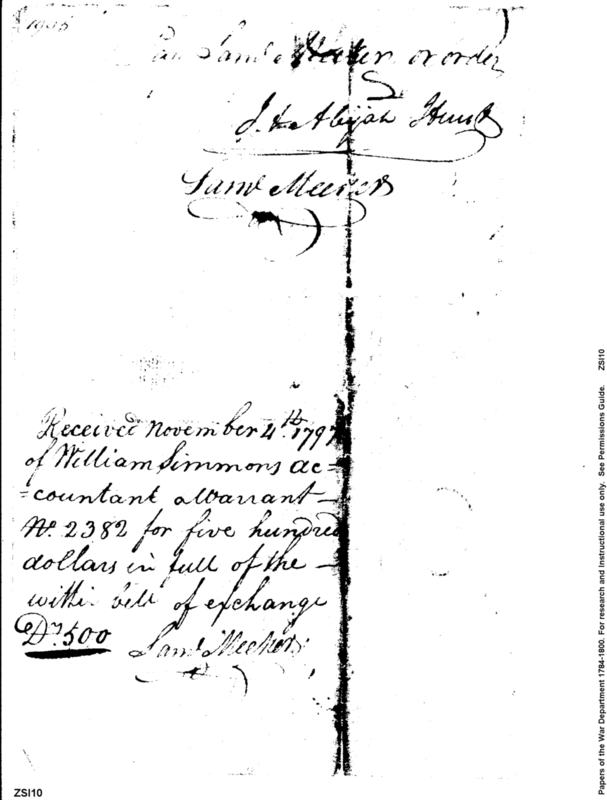 Pay Saml Meeker or order
J. & Abijah Hunt
Saml Meeker
Received November 4th 1797
of William Simmons ac=
=countant a Warrant
No. 2382 for five hundred
dollars in full of the
within bill of exchange
Drs 500 Saml Meeker
Papers of the War Department 1784-1800. For research and instructional use only. See Permissions Guide. ZSI10
ZSI10